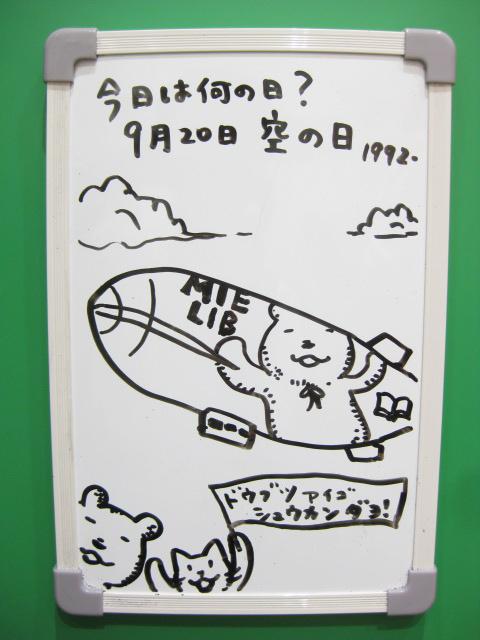 今日は何の日？
9月20日 空の日 1992-
MIE
LIB
ドウブツアイゴ
シュウカンダヨ！